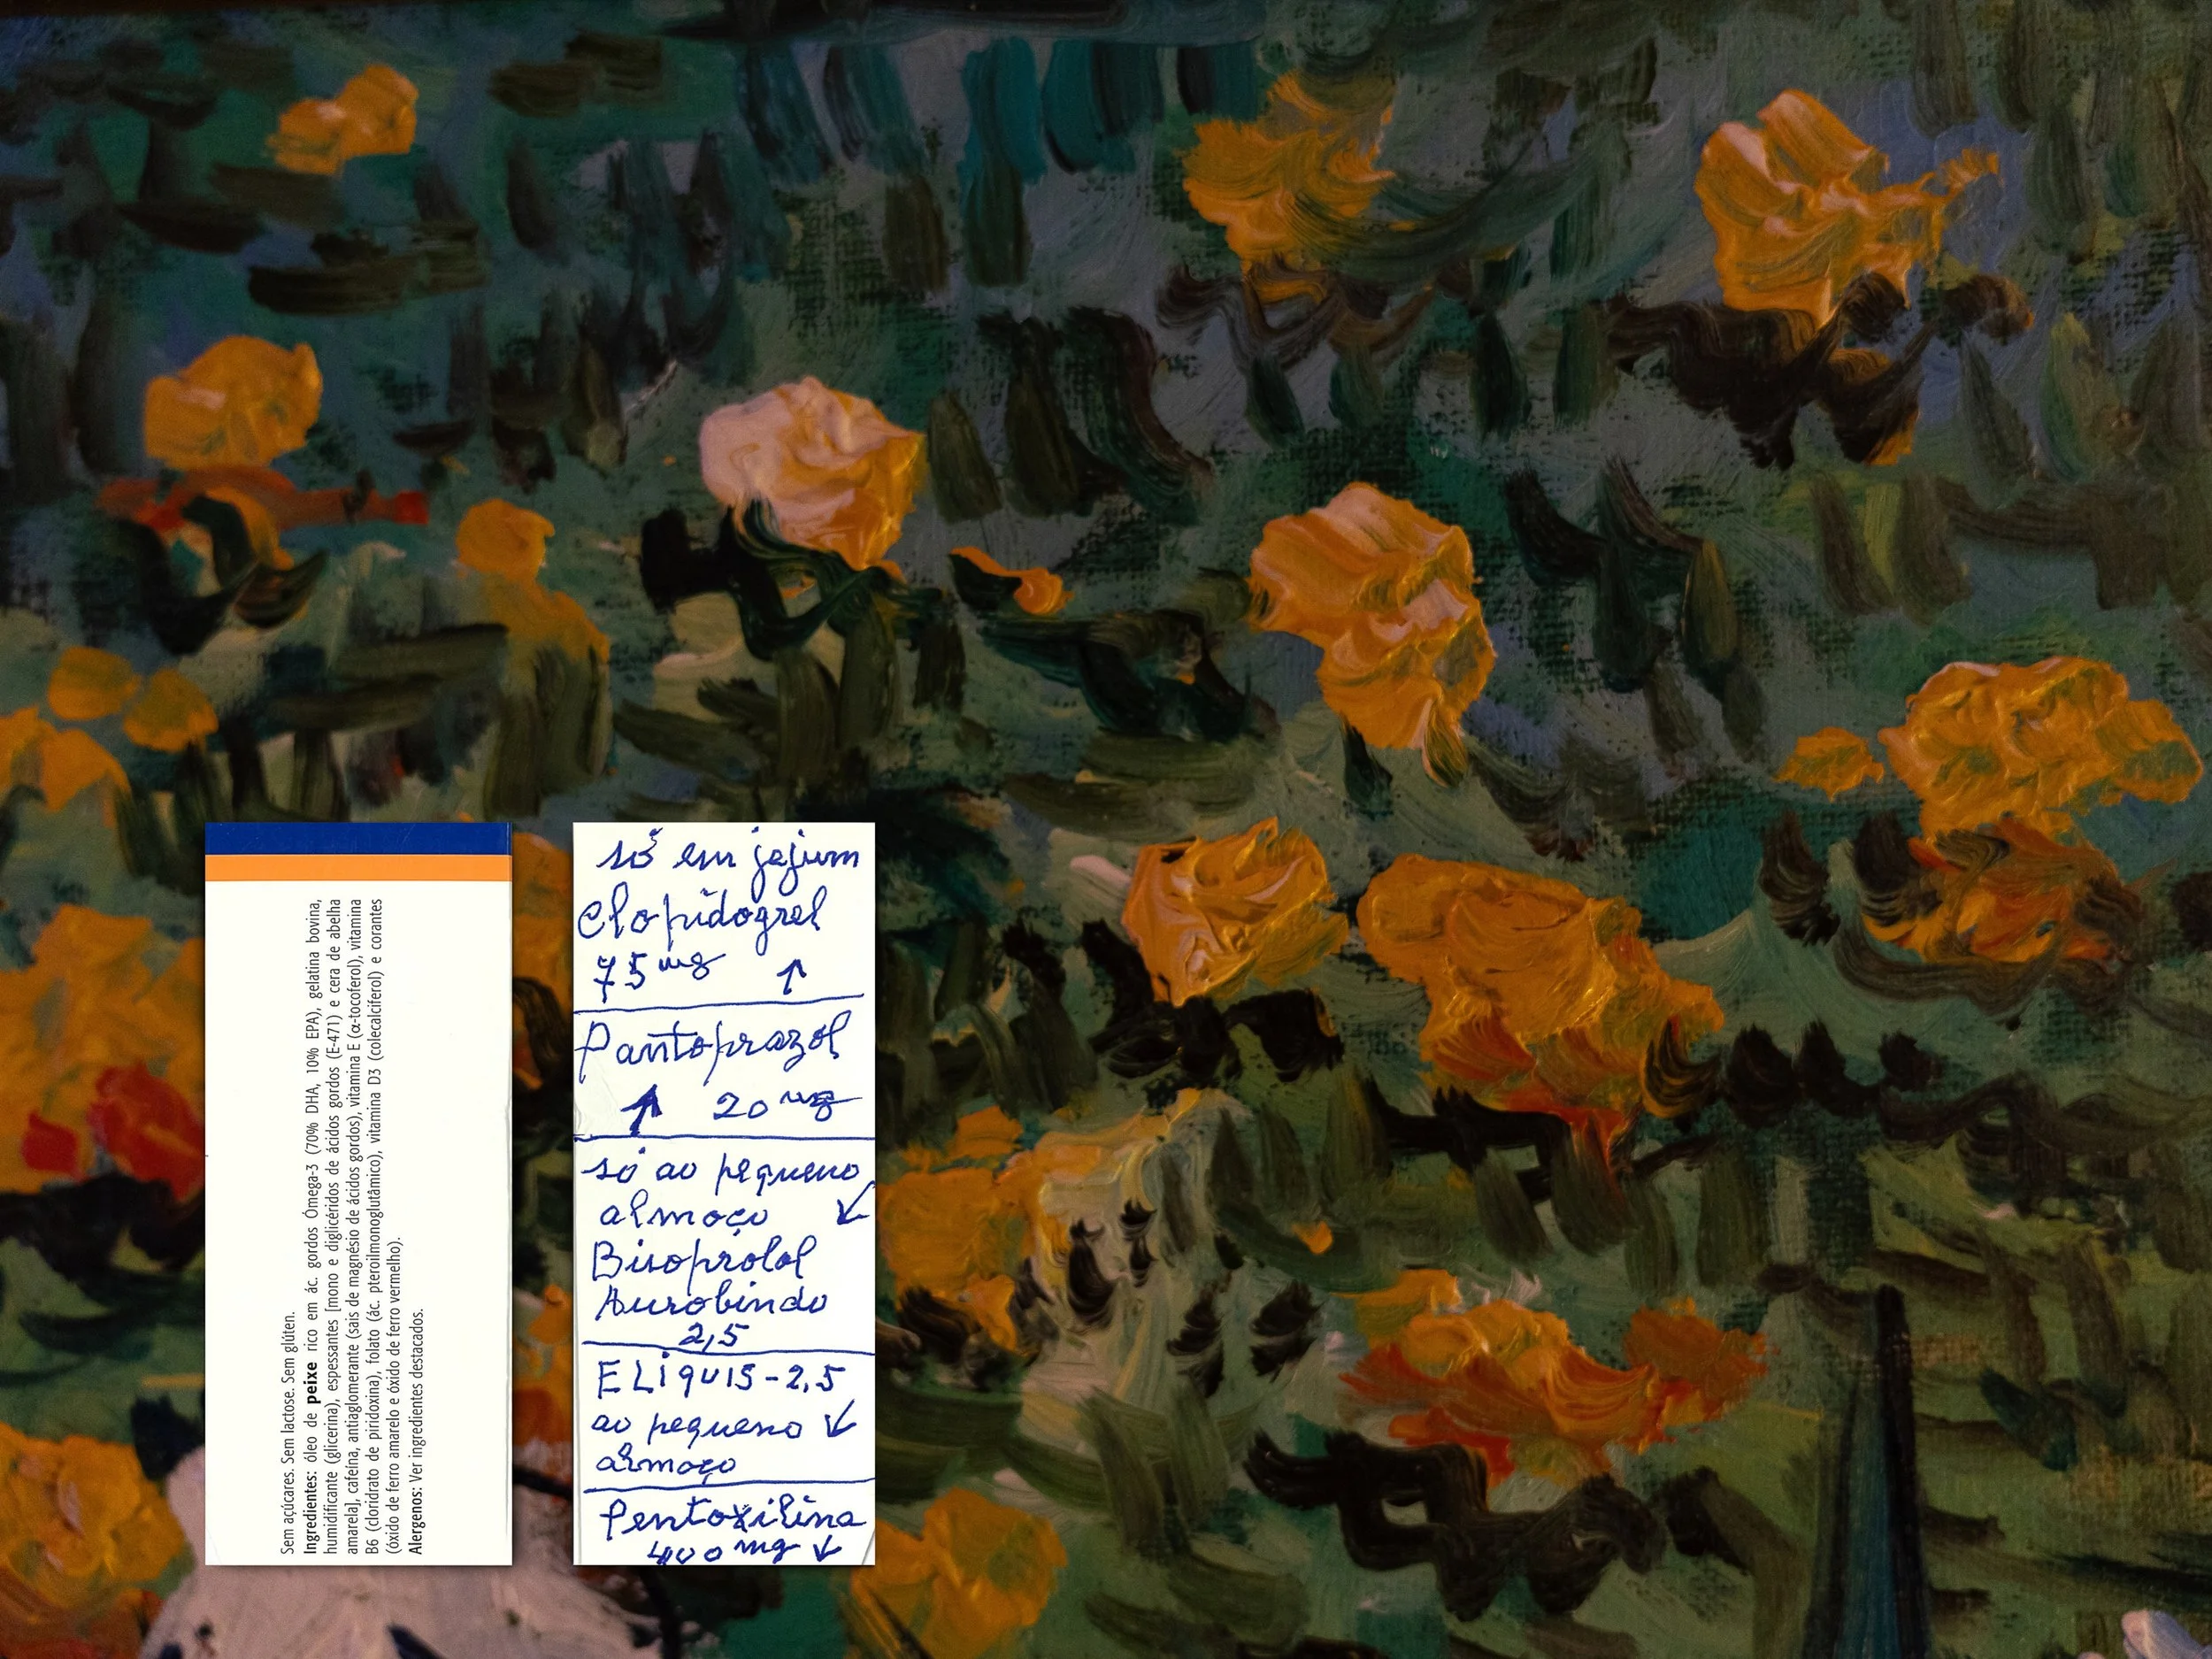 Sem açúcares. Sem lactose. Sem glúten.
Ingredientes: óleo de peixe rico em ác. gordos Ómega-3 (70% DHA, 10% EPA), gelatina bovina,
humidificante (glicerina), espessantes [mono e diglicéridos de ácidos gordos (E-471) e cera de abelha
amarela], cafeína, antiaglomerante (sais de magnésio de ácidos gordos), vitamina E (α-tocoferol), vitamina
B6 (cloridrato de piridoxina), folato (ác. pteroilmonoglutâmico), vitamina D3 (colecalciferol) e corantes
(óxido de ferro amarelo e óxido de ferro vermelho).
Alergenos: Ver ingredientes destacados.
só em jejum
Clopidogrel
75 mg ↑
Pantoprazol
↑ 20 mg
só ao pequeno
almoço ↙
Bisoprolol
Aurobindo
2,5
ELIQUIS-2,5
ao pequeno ↙
almoço
Pentoxilina
400 mg ↓